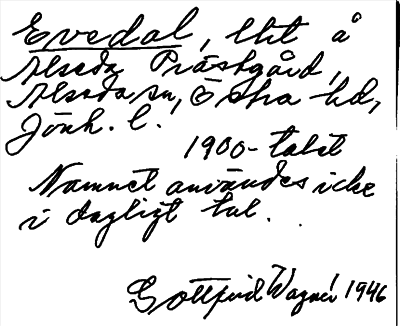 Evedal, lht å
Alseda Prästgård,
Alseda sn, Östra hd,
Jönk. l.
1900-talet
Namnet användes icke
i dagligt tal.
Gottfrid Wagnér 1946